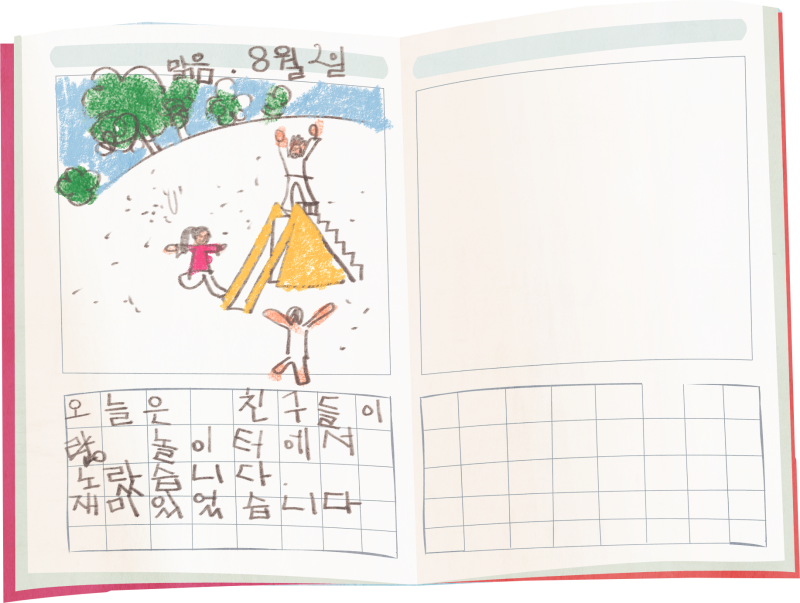 맑음. 8월 2일
오늘은 친구들이
놀이터에서
노랐습니다.
재미있었습니다